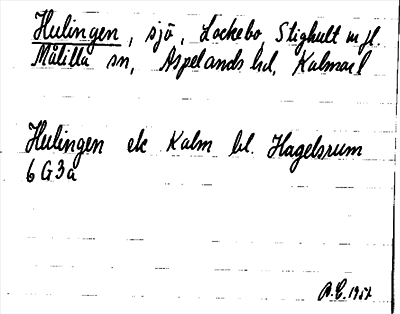 Hulingen, sjö, Lockebo, Stighult m fl.
Målilla sn, Aspelands hd, Kalmar l
Hulingen ek Kalm bl. Hagelsrum
6 G 3 a
1957